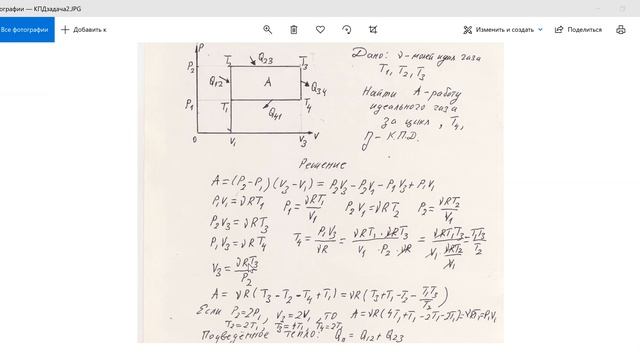 ографии — КПДзадача2.JPG
Все фотографии
Добавить к
Изменить и создать
Поделиться
P
P₂ T₂ Q₂₃ T₃
Q₁₂ A Q₃₄
P₁ T₁ T₄
Q₄₁
0 V₁ V₃ V
Дано: ν-молей идеал газа
T₁, T₂, T₃
Найти A-работу
идеального газа
за цикл, T₄,
η-К.П.Д.
Решение
A = (P₂-P₁)(V₃-V₁) = P₂V₃-P₂V₁-P₁V₃+P₁V₁
P₁V₁=νRT₁ P₁=νRT₁/V₁ P₂V₁=νRT₂ P₂=νRT₂/V₁
P₂V₃=νRT₃
P₁V₃=νRT₄ T₄=P₁V₃/νR=νRT₁·νRT₃/V₁·P₂·νR=νRT₁T₃/V₁νRT₂/V₁=T₁T₃/T₂
V₃=νRT₃/P₂
A = νR(T₃-T₂-T₄+T₁)=νR(T₃+T₁-T₂-T₁T₃/T₂)
Если P₂=2P₁, V₃=2V₁, ТО A=νR(4T₁+T₁-2T₁-2T₁)=νRT₁=P₁V₁
T₂=2T₁, T₃=4T₁, T₄=2T₁
Подведённое тепло: Qп = Q₁₂+Q₂₃